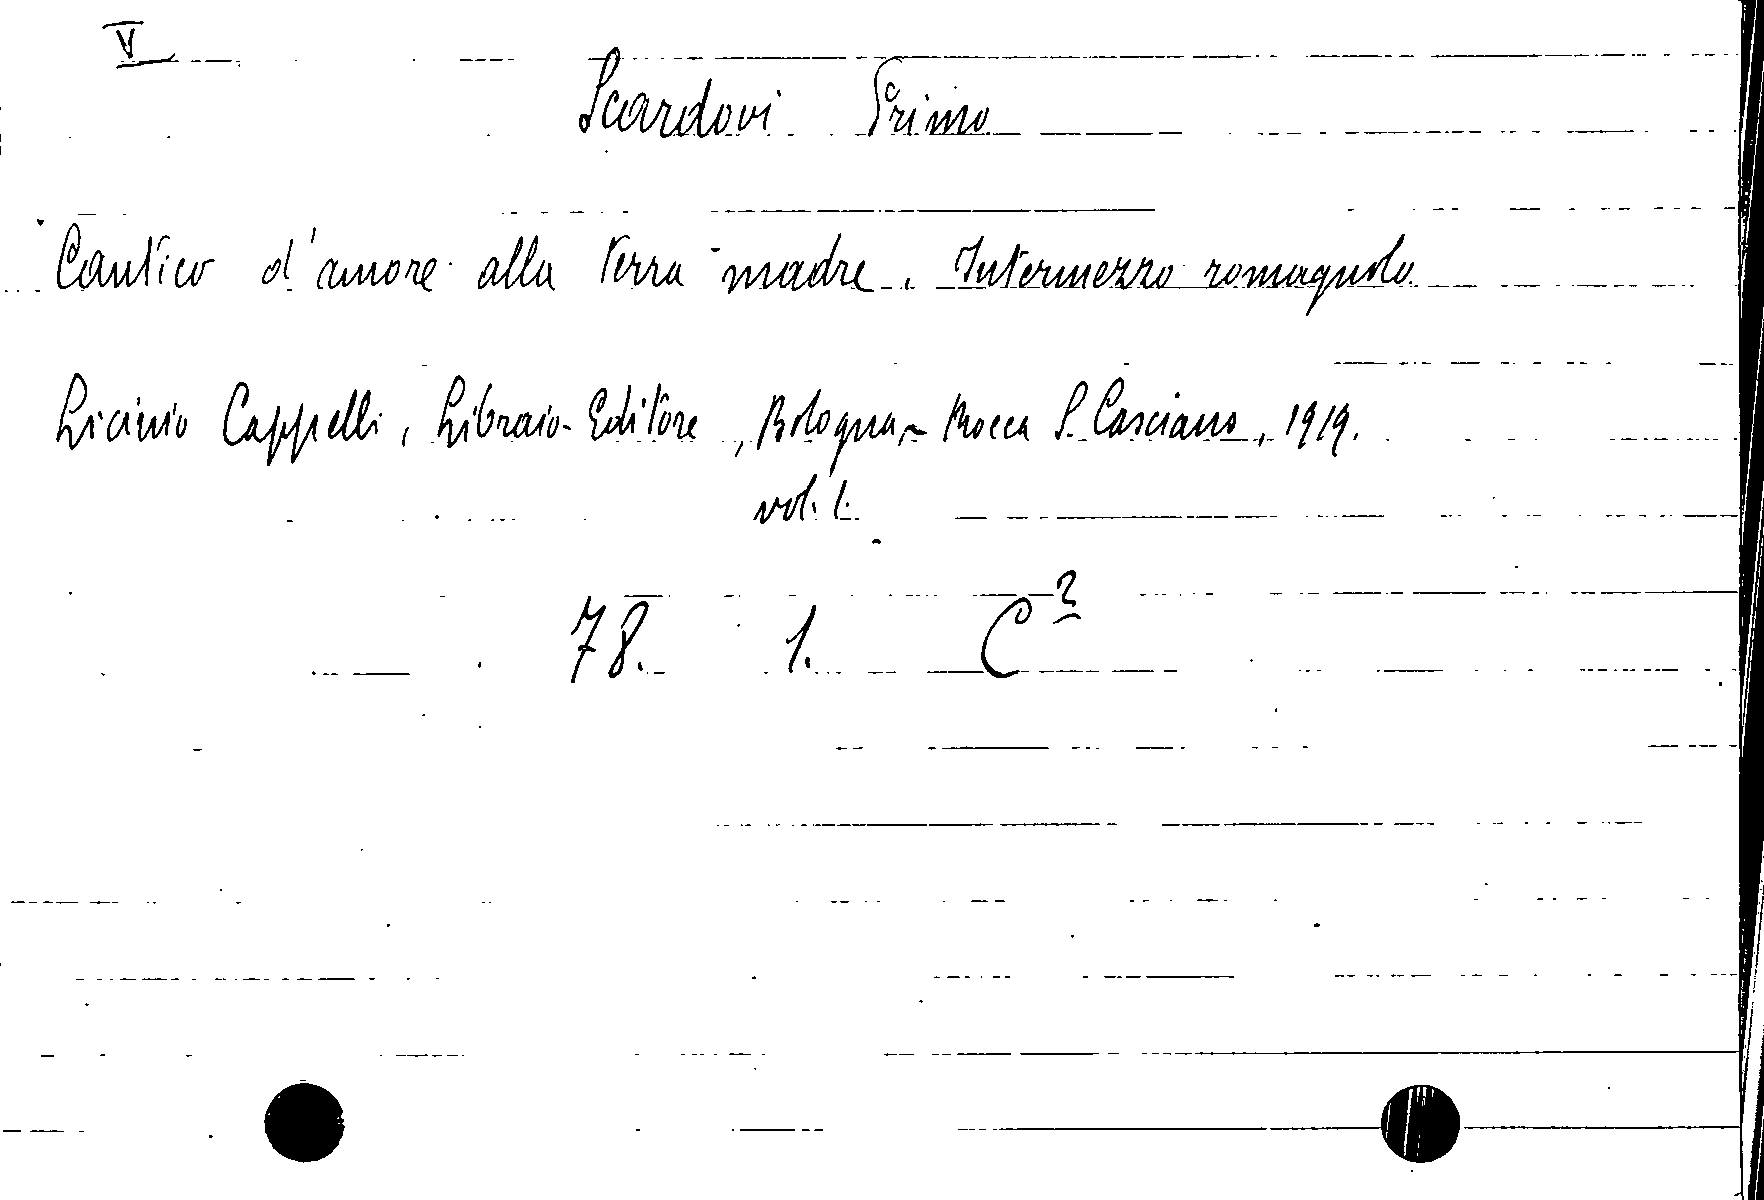 V
Scardovi Primo
Cantico d'amore alla terra madre. Intermezzo romagnolo
Licinio Cappelli, Libraio-Editore, Bologna - Rocca S. Casciano, 1919.
vol. 1.
78. 1. C²